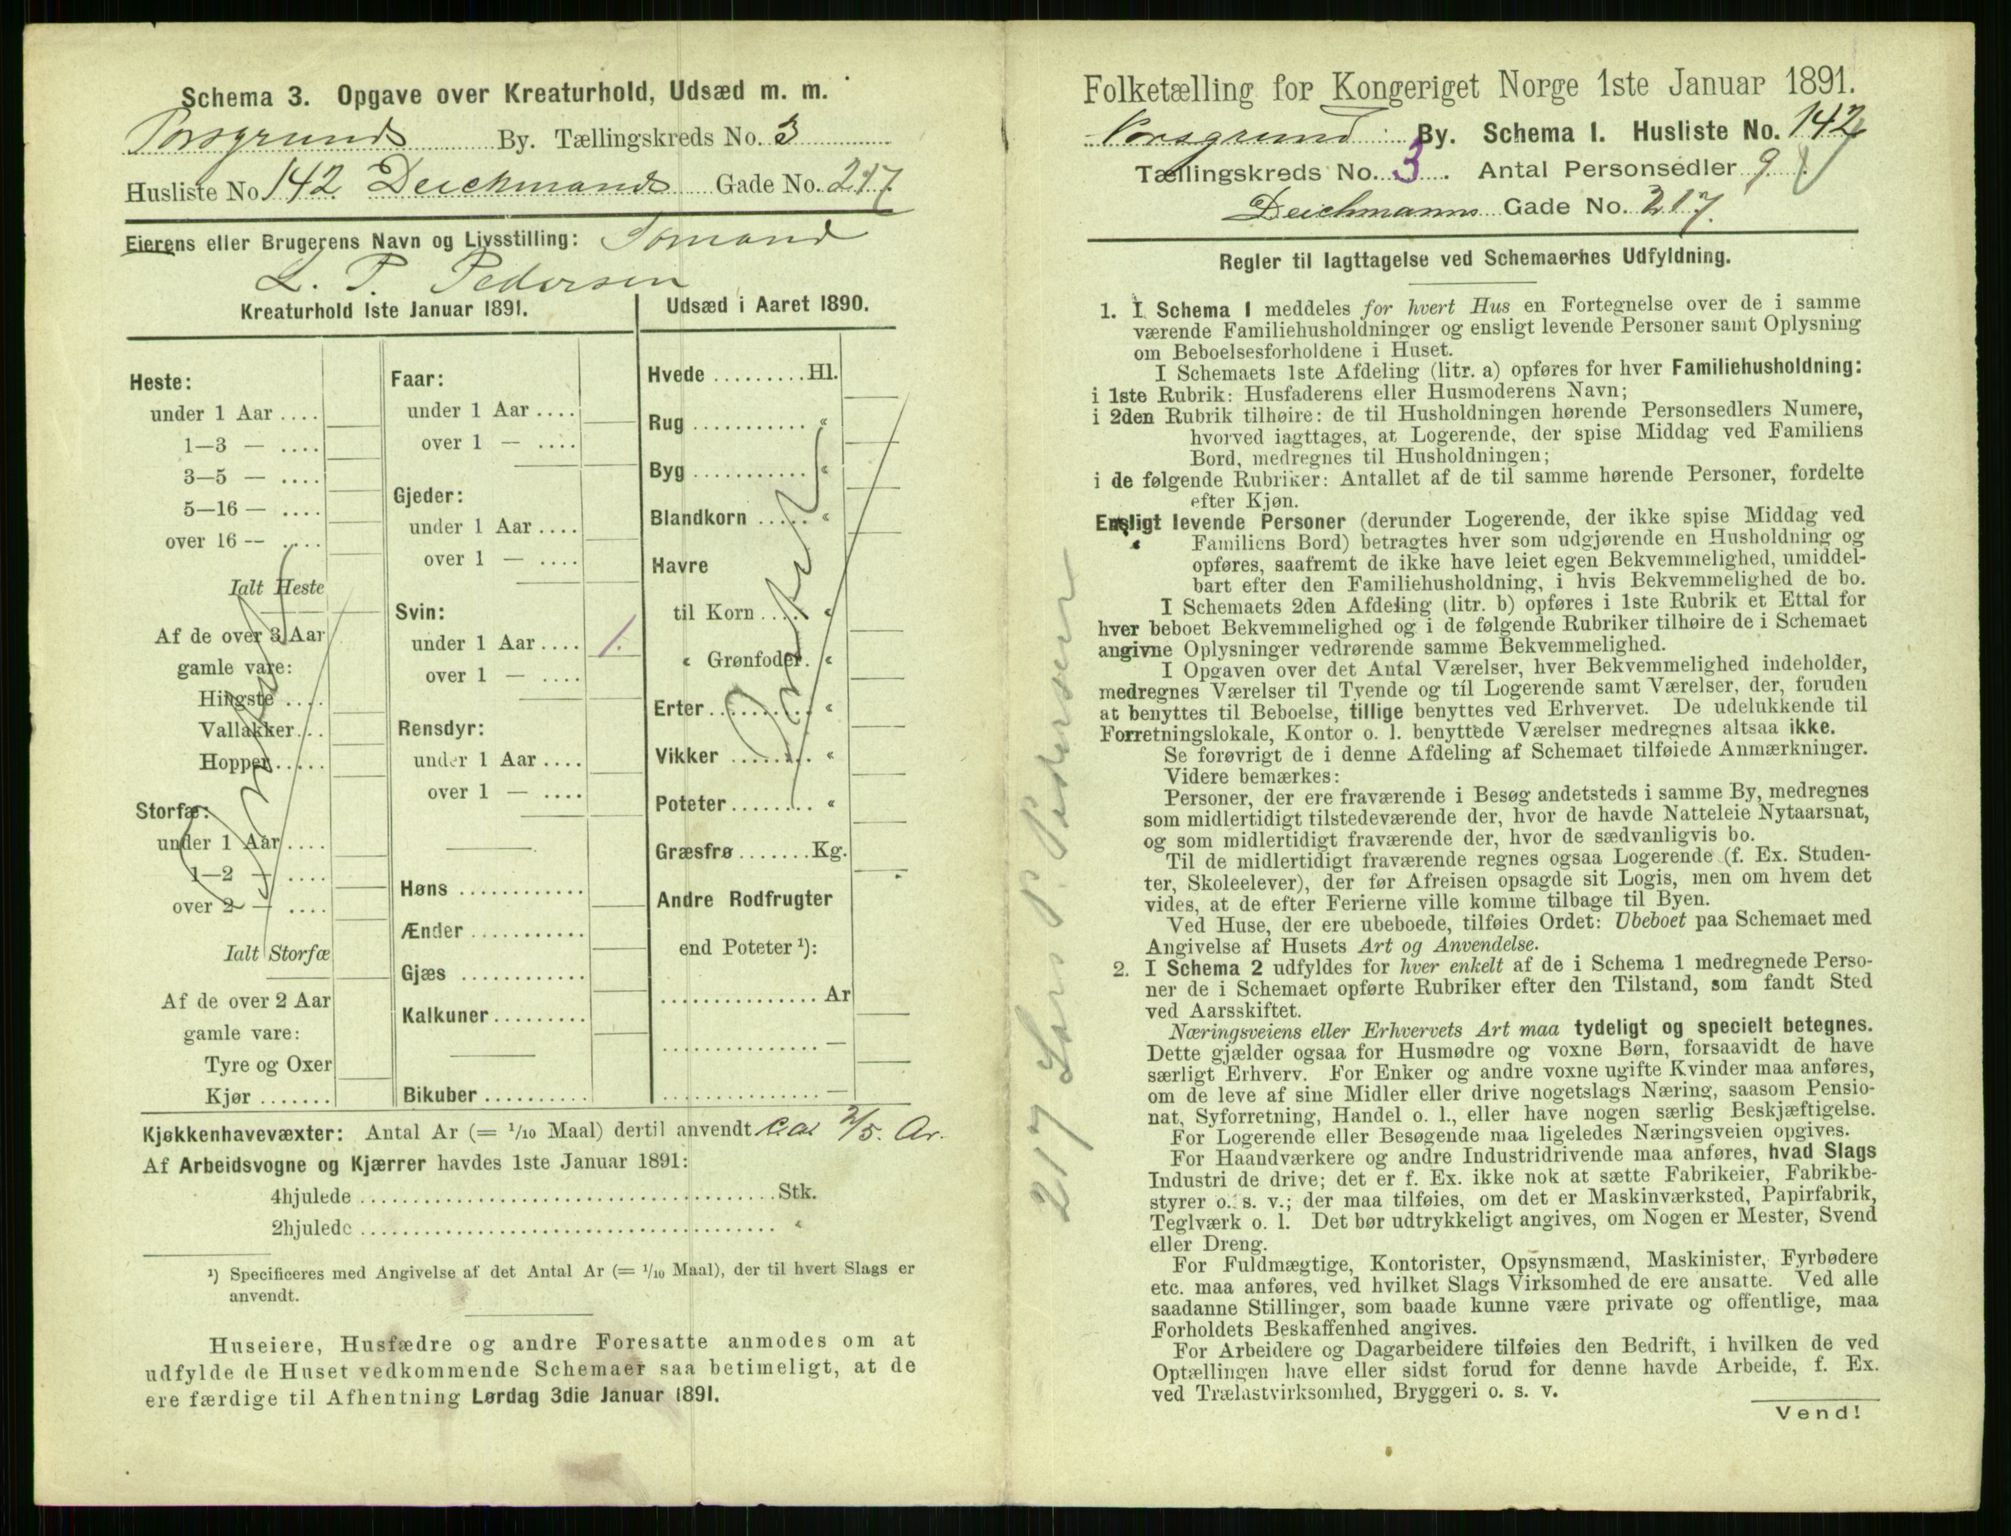 Schema 3. Opgave over Kreaturhold, Udsæd m. m.
Porsgrunds By. Tællingskreds No. 3
Husliste No 142 Deichmands Gade No. 217
Eierens eller Brugerens Navn og Livsstilling: Sømand
L. P. Pedersen
Kreaturhold 1ste Januar 1891.
Heste:
under 1 Aar ....
1—3 — ....
3—5 — ....
5—16 — ....
over 16 — ....
Ialt Heste
Af de over 3 Aar
gamle vare:
Hingste ....
Vallakker...
Hopper.....
Storfæ:
under 1 Aar ....
1—2 — ....
over 2 — ....
Ialt Storfæ
Af de over 2 Aar
gamle vare:
Tyre og Oxer
Kjør .......
Faar:
under 1 Aar ....
over 1 — ....
Gjeder:
under 1 Aar ....
over 1 — ....
Svin:
under 1 Aar .... 1.
over 1 — ....
Rensdyr:
under 1 Aar ....
over 1 — ....
Høns ............
Ænder ...........
Gjæs ............
Kalkuner.........
Bikuber ..........
Udsæd i Aaret 1890.
Hvede .........Hl.
Rug ........... "
Byg ........... "
Blandkorn ..... "
Havre
til Korn ..... "
" Grønfoder. "
Erter.......... "
Vikker ........ "
Poteter........ "
Græsfrø .......Kg.
Andre Rodfrugter
end Poteter ¹):
............... Ar
............... —
............... —
Kjøkkenhavevæxter: Antal Ar (= 1/10 Maal) dertil anvendt ca. 2/5. Ar.
Af Arbeidsvogne og Kjærrer havdes 1ste Januar 1891:
4hjulede ........................................Stk.
2hjulede ........................................ "
¹) Specificeres med Angivelse af det Antal Ar (= 1/10 Maal), der til hvert Slags er
anvendt.
Huseiere, Husfædre og andre Foresatte anmodes om at
udfylde de Huset vedkommende Schemaer saa betimeligt, at de
ere færdige til Afhentning Lørdag 3die Januar 1891.
217 Lars P. Pedersen
Folketælling for Kongeriget Norge 1ste Januar 1891.
Porsgrund By. Schema 1. Husliste No. 142
Tællingskreds No. 3. Antal Personsedler 9.
Deichmanns Gade No. 217.
Regler til Iagttagelse ved Schemaernes Udfyldning.
1. I Schema 1 meddeles for hvert Hus en Fortegnelse over de i samme
værende Familiehusholdninger og ensligt levende Personer samt Oplysning
om Beboelsesforholdene i Huset.
I Schemaets 1ste Afdeling (litr. a) opføres for hver Familiehusholdning:
i 1ste Rubrik: Husfaderens eller Husmoderens Navn;
i 2den Rubrik tilhøire: de til Husholdningen hørende Personsedlers Numere,
hvorved iagttages, at Logerende, der spise Middag ved Familiens
Bord, medregnes til Husholdningen;
i de følgende Rubriker: Antallet af de til samme hørende Personer, fordelte
efter Kjøn.
Ensligt levende Personer (derunder Logerende, der ikke spise Middag ved
Familiens Bord) betragtes hver som udgjørende en Husholdning og
opføres, saafremt de ikke have leiet egen Bekvemmelighed, umiddel-
bart efter den Familiehusholdning, i hvis Bekvemmelighed de bo.
I Schemaets 2den Afdeling (litr. b) opføres i 1ste Rubrik et Ettal for
hver beboet Bekvemmelighed og i de følgende Rubriker tilhøire de i Schemaet
angivne Oplysninger vedrørende samme Bekvemmelighed.
I Opgaven over det Antal Værelser, hver Bekvemmelighed indeholder,
medregnes Værelser til Tyende og til Logerende samt Værelser, der, foruden
at benyttes til Beboelse, tillige benyttes ved Erhvervet. De udelukkende til
Forretningslokale, Kontor o. l. benyttede Værelser medregnes altsaa ikke.
Se forøvrigt de i denne Afdeling af Schemaet tilføiede Anmærkninger.
Videre bemærkes:
Personer, der ere fraværende i Besøg andetsteds i samme By, medregnes
som midlertidigt tilstedeværende der, hvor de havde Natteleie Nytaarsnat,
og som midlertidigt fraværende der, hvor de sædvanligvis bo.
Til de midlertidigt fraværende regnes ogsaa Logerende (f. Ex. Studen-
ter, Skoleelever), der før Afreisen opsagde sit Logis, men om hvem det
vides, at de efter Ferierne ville komme tilbage til Byen.
Ved Huse, der ere ubeboede, tilføies Ordet: Ubeboet paa Schemaet med
Angivelse af Husets Art og Anvendelse.
2. I Schema 2 udfyldes for hver enkelt af de i Schema 1 medregnede Perso-
ner de i Schemaet opførte Rubriker efter den Tilstand, som fandt Sted
ved Aarsskiftet.
Næringsveiens eller Erhvervets Art maa tydeligt og specielt betegnes.
Dette gjælder ogsaa for Husmødre og voxne Børn, forsaavidt de have
særligt Erhverv. For Enker og andre voxne ugifte Kvinder maa anføres,
om de leve af sine Midler eller drive nogetslags Næring, saasom Pensio-
nat, Syforretning, Handel o. l., eller have nogen særlig Beskjæftigelse.
For Logerende eller Besøgende maa ligeledes Næringsveien opgives.
For Haandværkere og andre Industridrivende maa anføres, hvad Slags
Industri de drive; det er f. Ex. ikke nok at sætte Fabrikeier, Fabrikbe-
styrer o. s. v.; der maa tilføies, om det er Maskinværksted, Papirfabrik,
Teglværk o. l. Det bør udtrykkeligt angives, om Nogen er Mester, Svend
eller Dreng.
For Fuldmægtige, Kontorister, Opsynsmænd, Maskinister, Fyrbødere
etc. maa anføres, ved hvilket Slags Virksomhed de ere ansatte. Ved alle
saadanne Stillinger, som baade kunne være private og offentlige, maa
Forholdets Beskaffenhed angives.
For Arbeidere og Dagarbeidere tilføies den Bedrift, i hvilken de ved
Optællingen have eller sidst forud for denne havde Arbeide, f. Ex.
ved Trælastvirksomhed, Bryggeri o. s. v.
Vend!